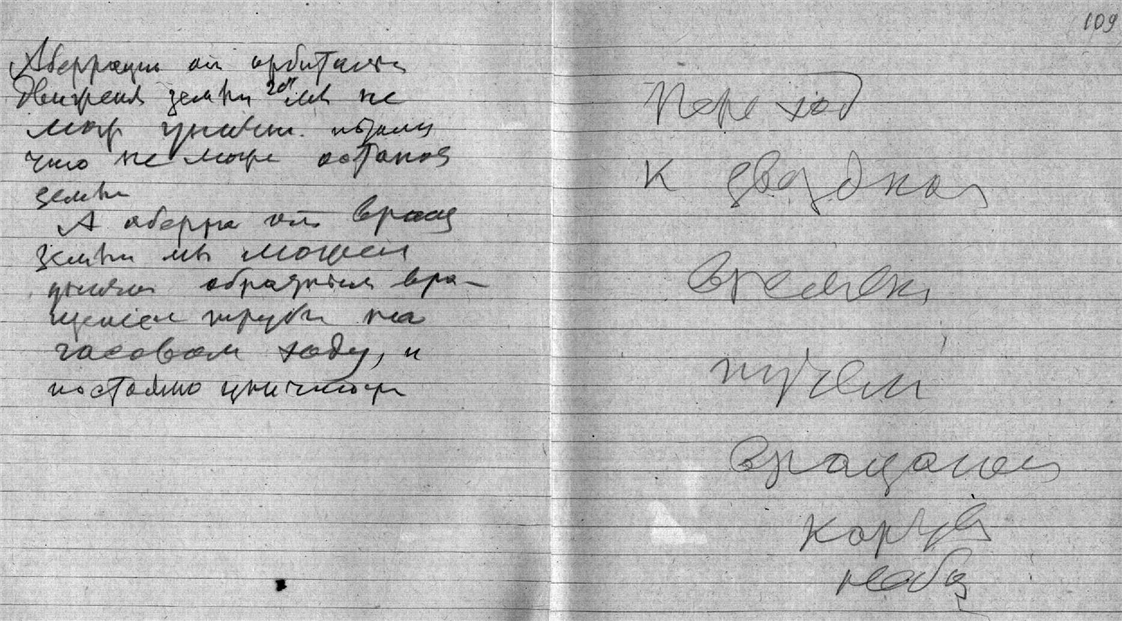 Аберрации от орбитальн
движения земли 20" мы не
мож уничт. потому
что не може останов
земли
А аберра от вращ
земли мы можем
уничтож обратным вра-
щением трубы на
часовом ходу, и
постоянно уничтожи
109
Переход
к звездной
времени
путем
вращаной
карты
неба